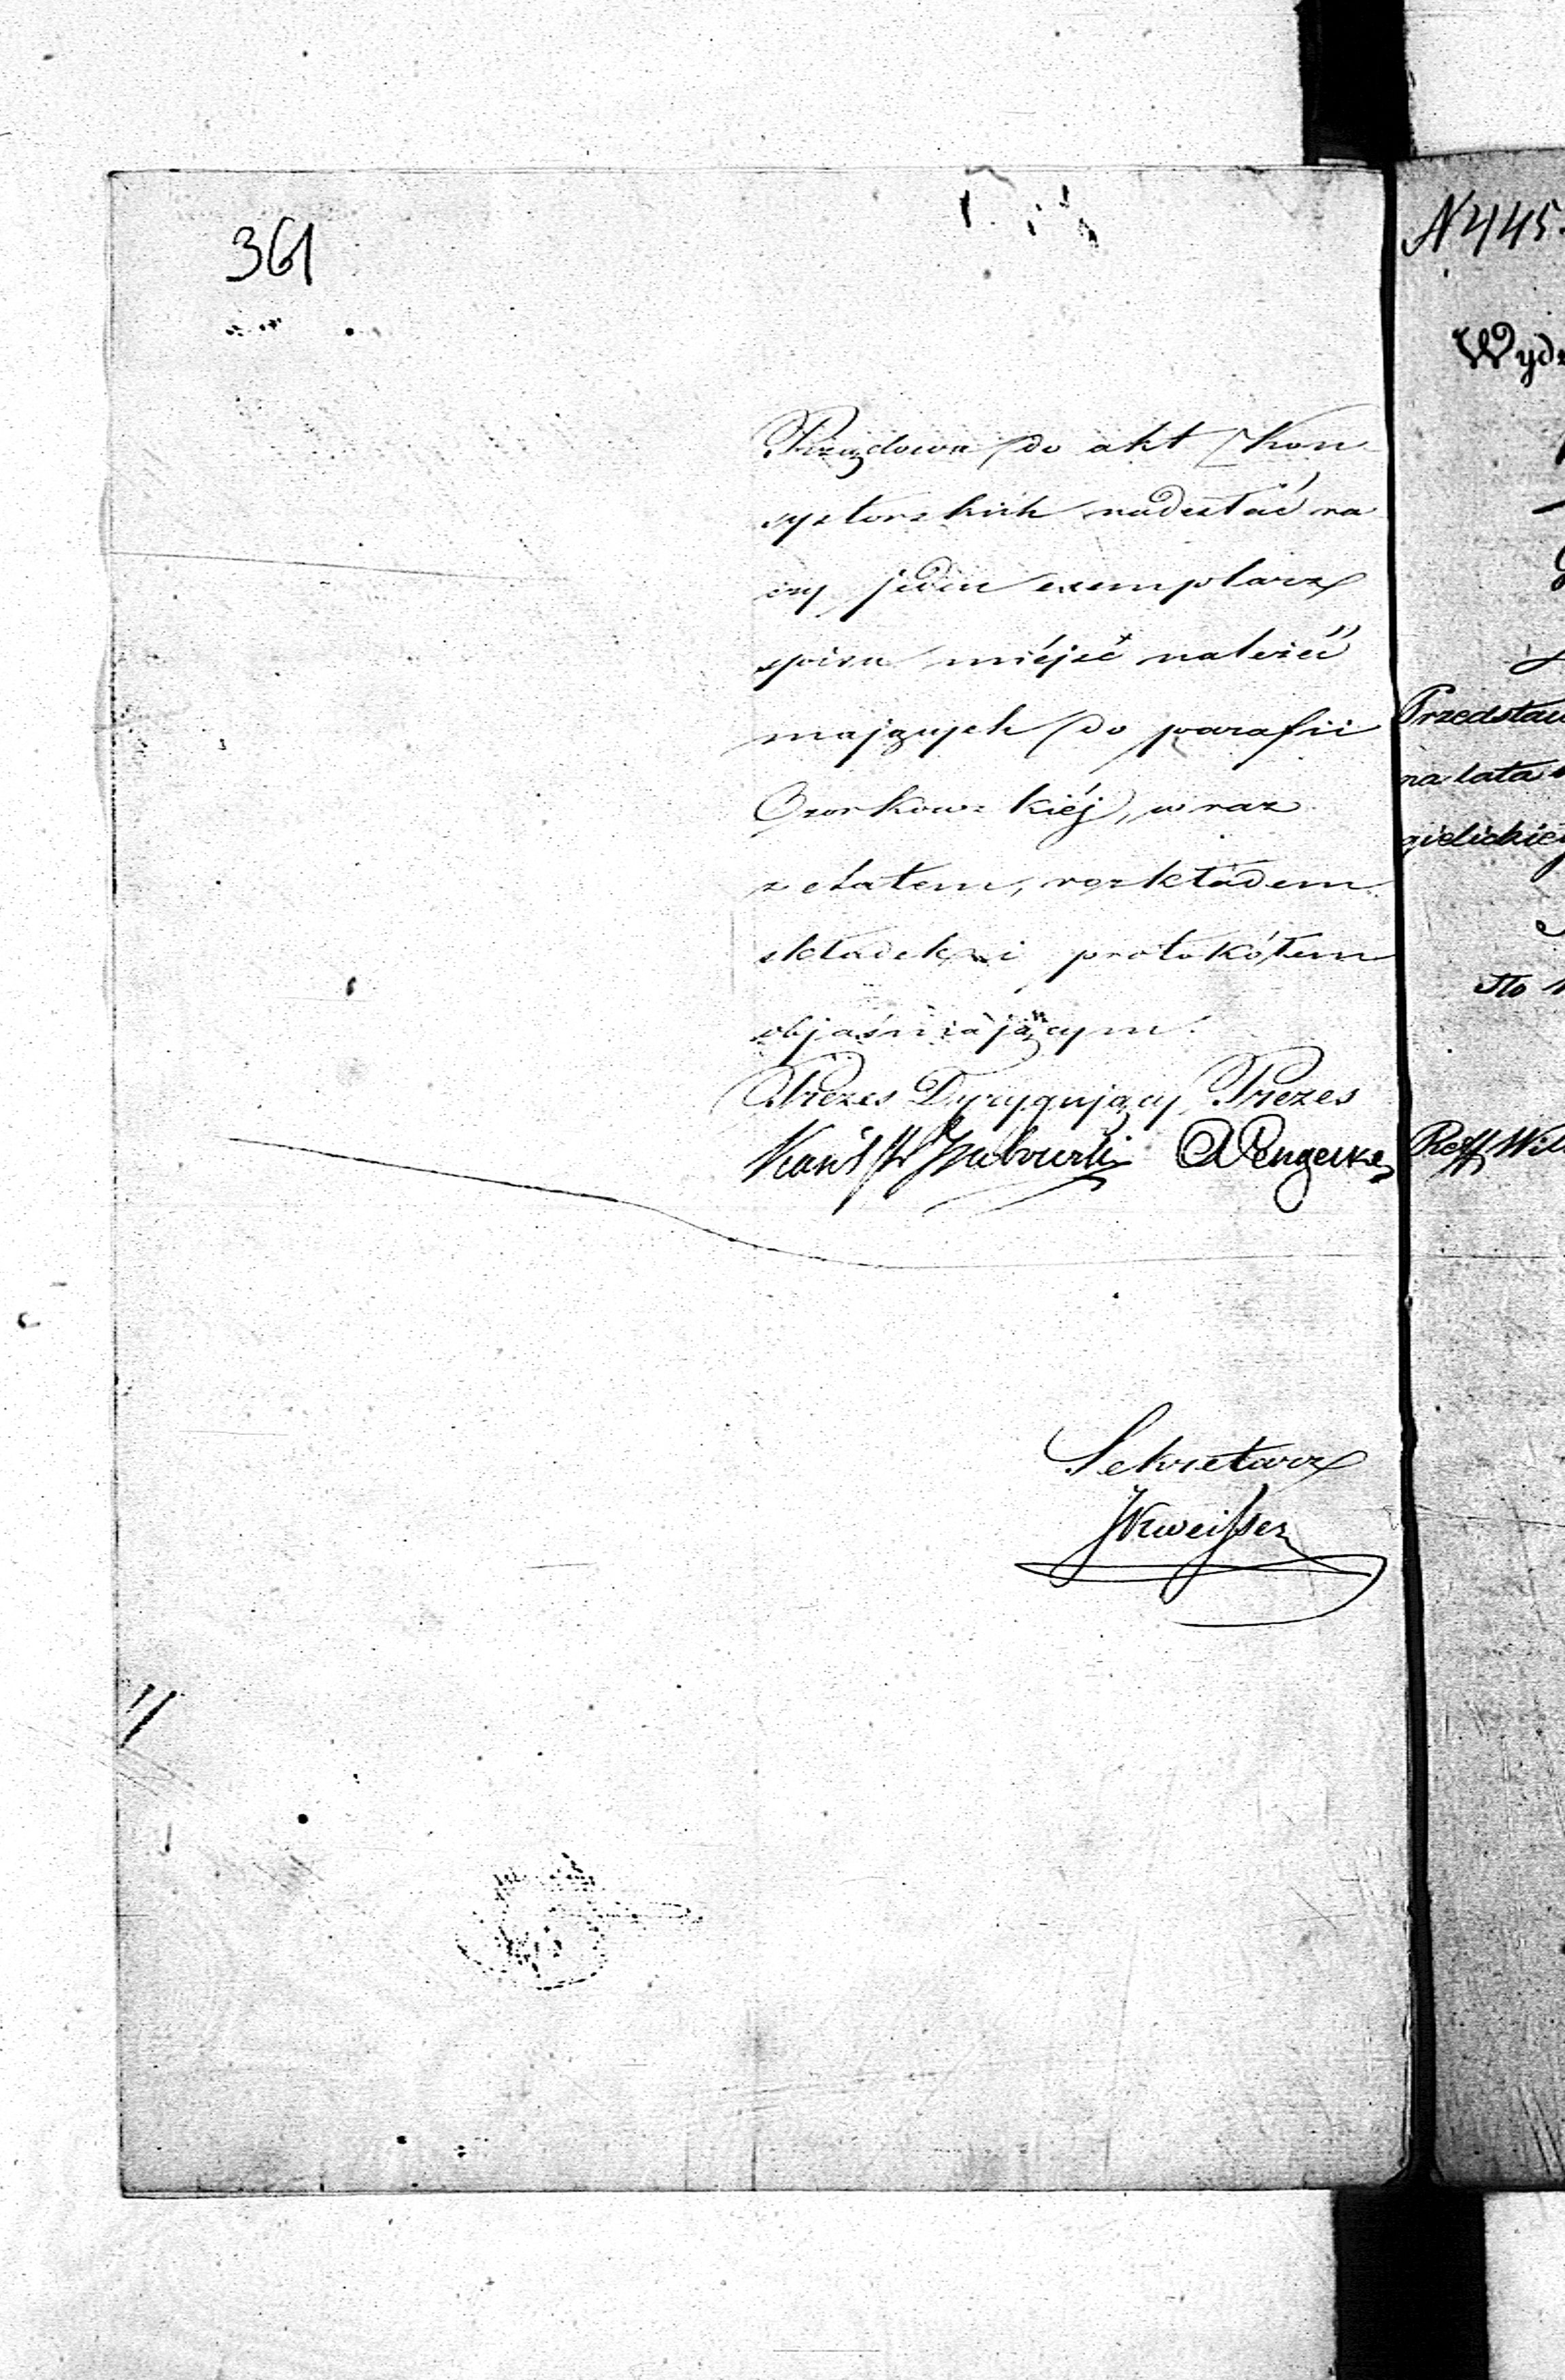 361
Rządowa do akt Kon-
systorskich nadesłać ra
czy jeden exemplarz
spisu miejsc należeć
mających do parafii
Ozorkowskiéj, wraz
z etatem, rozkładem
składek i protokółem
objaśniającym.
Prezes Dyrygujący Prezes
Sekretarz
N 445.
Wydz
Przedstaw
na lata
gielickiej